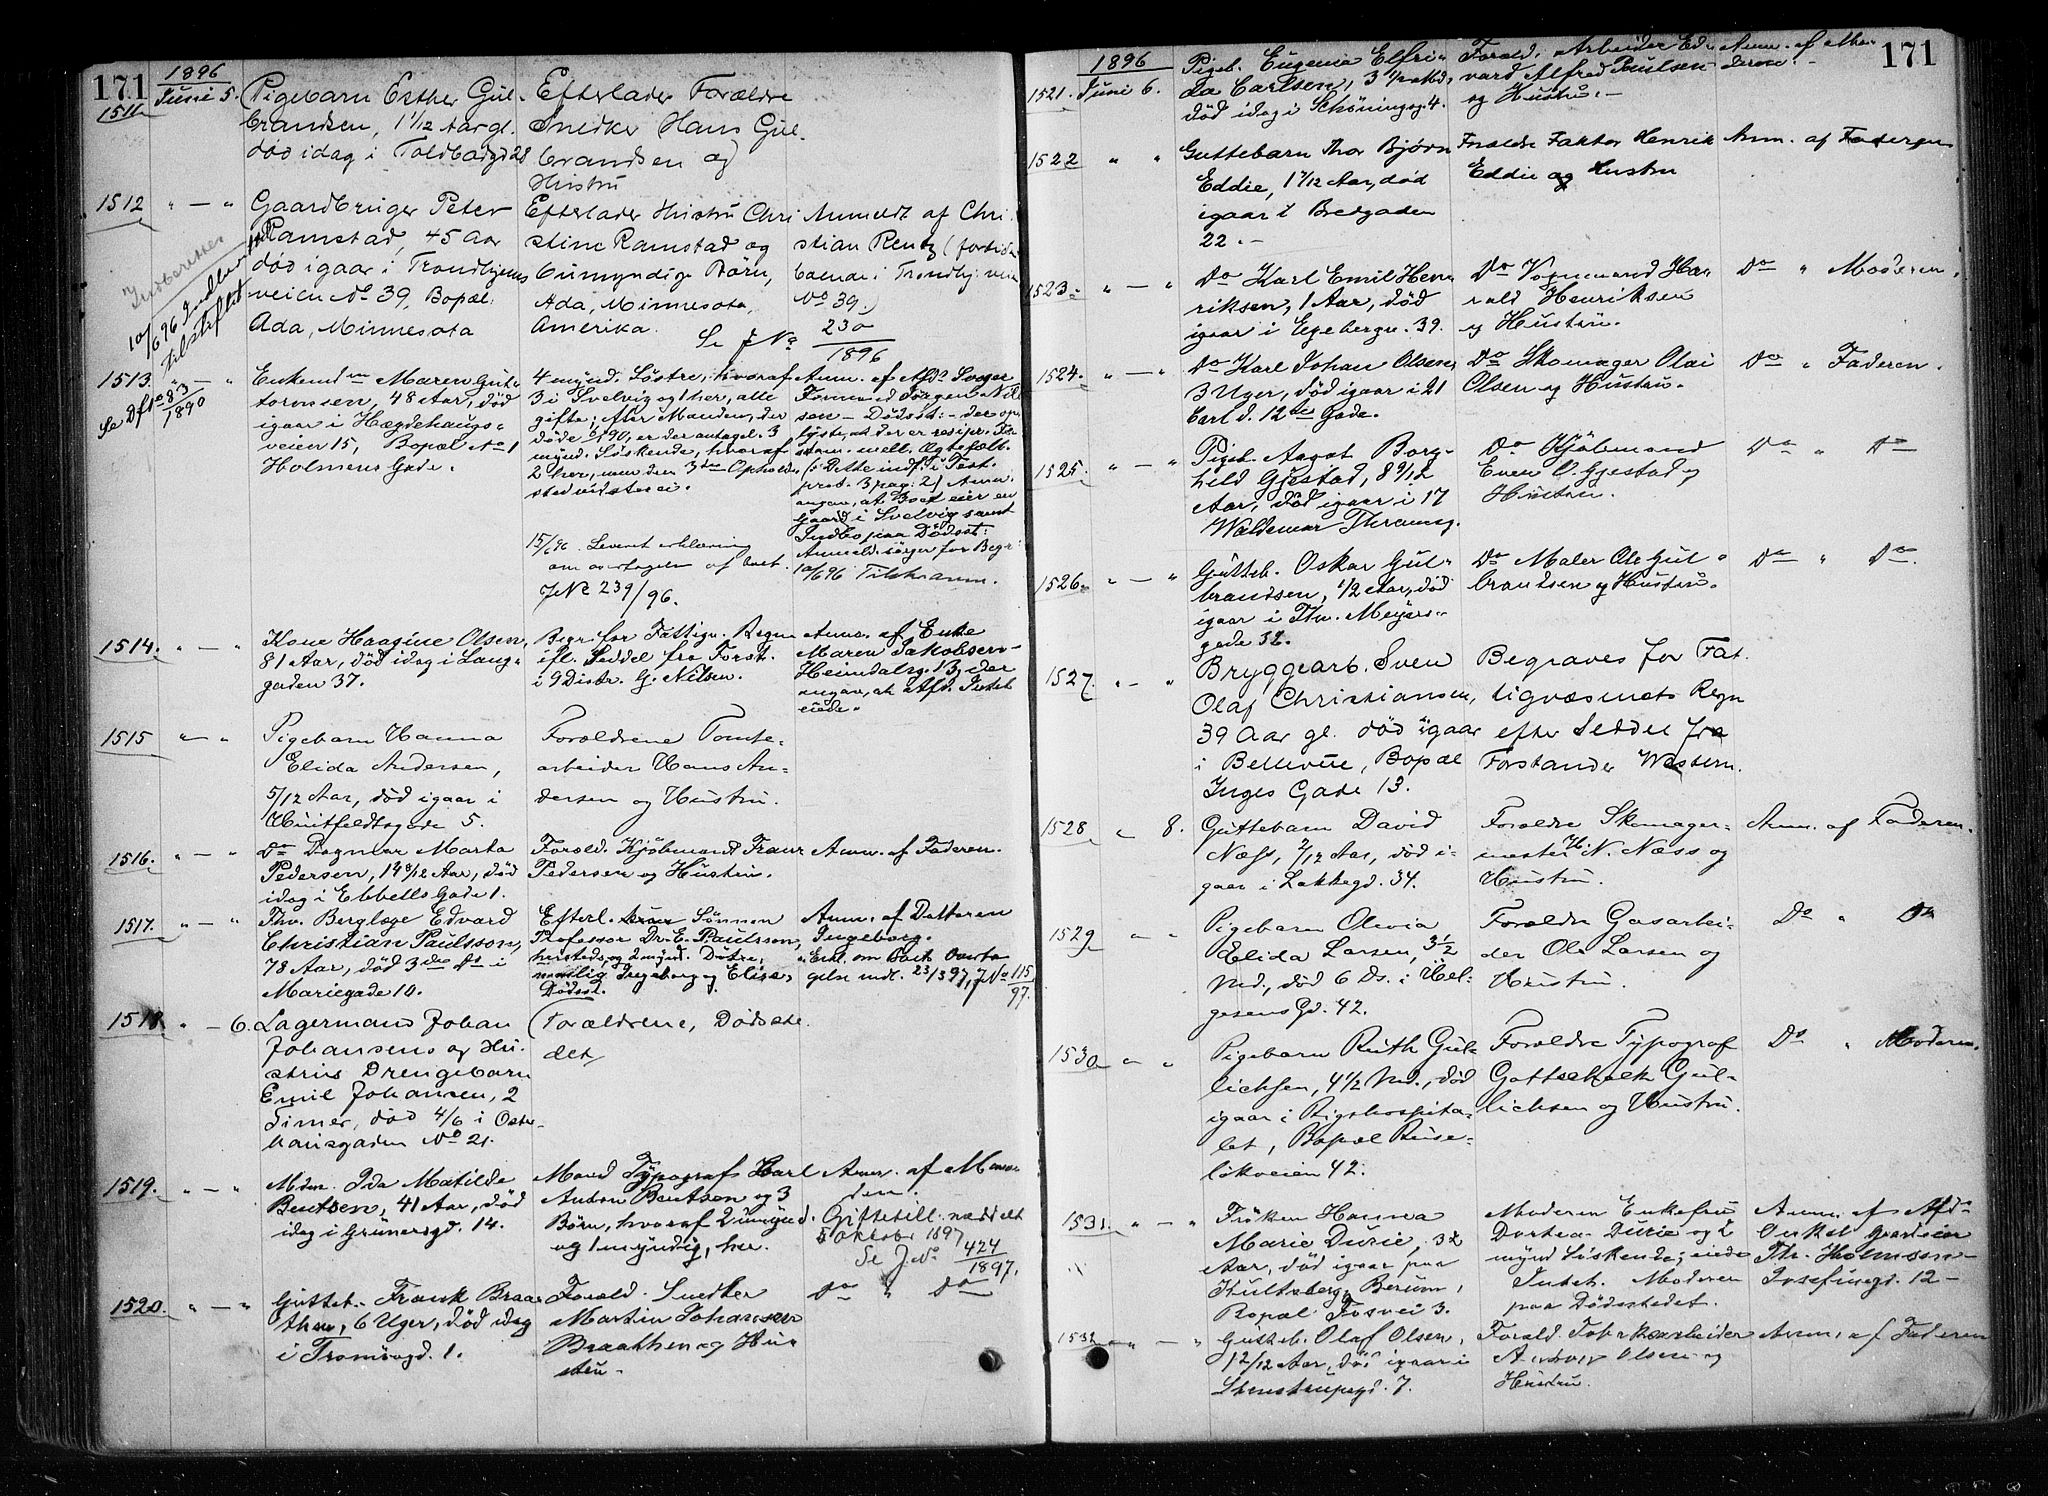 171
1896
1511
Junie 5.
Pigebarn Esther Gul-
brandsen, 1 1/12 Aar gl.
død idag i Toldbodgd 28
Efterlader Forældre
Snedker Hans Gul-
brandsen og
Hustru
1512
" — "
Gaardbruger Peter
Ramstad, 45 Aar
død igaar i Trondhjems
veien No 39, Bopæl:
Ada, Minnesota
Efterlader Hustru Chri
stine Ramstad og
6 umyndige Børn,
Ada, Minnesota,
Amerika.
Anmeldt af Chri
stian Rentz (forside-
boende i Trondhj. veien
No 39.)
Se J No 230/1896
Indberettes
10/6 96 Indberettet
Tilstillet
1513. " — "
Se Df to 83/1890
Enkemdm Maren Gut-
tormsen, 48 Aar, død
igaar i Hægdehaugs-
veien 15, Bopæl No 1
Holmens Gade.
4 mynd. Søstre, hvoraf
3 i Svelvig og 1 her, alle
gifte; efter Manden, der
døde 90, er der antagel. 3
mynd. Søskende, hvoraf
2 her, men den 3die Opholds
sted vidstes ei.
15/6 96. Leveret erklæring
om overtagelse af boet.
J No 239/96.
Anm. af Afdo Svoger
Formand Jørgen Nil
sen — Dødsst: — der op
lyste, at der er resipr. Te
stam. mell. Ægtefolk.
(Dette indf. i Test.
prot. 3 pag: 2) Anm.
angav, at Boet eier en
Gaard i Svelvig samt
Indbo paa Dødsst:
Anmeld. sørger for Begr:
10/6 96 Tilskr. anm.
1514. " — "
Kone Haagine Olsen,
81 Aar, død idag i Lang-
gaden 37.
Begr. for Fattigv. Regn
ifl. Seddel fra Forst.
i 9 Distr. G. Nilsen.
Anm. af Enke
Maren Jakobsen
Heimdalsg. 13, der
angav, at Afd. Intet
eiede.
1515 " — "
Pigebarn Hanna
Elida Andersen,
5/12 Aar, død igaar i
Huitfeldtsgade 5.
Forældrene Tomte-
arbeider Hans An-
dersen og Hustru.
1516. " — "
Do Dagmar Marta
Pedersen, 14 8/12 Aar, død
idag i Ebbells Gade 1.
Foræld. Kjøbmand Franz
Pedersen og Hustru.
Anm. af Faderen.
1517. " — "
Fhv. Berglæge Edvard
Christian Paulsson,
78 Aar, død 3die Ds i
Mariegade 10.
Efterl. Sønnen
Professor Dr. E. Paulsson,
hersteds, og 2 mynd. Døtre,
nemlig Ingeborg og Elisa,
Dødsst.
Anm. af Datteren
Ingeborg.
Erkl. om Boets Overta
gelse indl. 23/3 97, J No 115/97.
1518 " — 6.
Lagermand Johan
Johansens og Hu-
strus Drengebarn
Emil Johansen, 2
Timer, død 4/6 i Oster-
hausgaden No 21.
Forældrene, Dødsste
det
1519. " — "
Mdm. Ida Matilde
Bentsen, 41 Aar, død
idag i Grünersgd. 14.
Mand Typograf Karl
Anton Bentsen og 3
Børn, hvoraf 2 umynd.
og 1 myndig, her.
Anm. af Man
den.
Giftetill. nedd. elt
5 Oktober 1897
Se J. No 424/1897.
1520. " — "
Gutteb. Frank Braa-
then, 6 Uger, død idag
i Tromsøgd. 1.
Foræld. Snedker
Martin Johansen
Braathen og Hu-
stru.
Do " Do
171
1896
1521. Juni 6.
Pigeb. Eugenia Elfri-
da Carlsen, 3 1/2 Md,
død idag i Schøningsg. 4.
Foræld. Arbeider Ed-
vard Alfred Paulsen
og Hustru.—
Anm. af Mo-
deren.—
1522 " "
Guttebarn Thor Bjørn
Eddie, 1 7/12 Aar, død
igaar i Bredgaden
22.—
Forældre Faktor Henrik
Eddie og Hustru
Anm. af Faderen
1523. " — "
Do Karl Emil Hen-
riksen, 1 Aar, død
igaar i Egebergv. 39.
Do Vognmand Ha-
rald Henriksen
og Hustru.
Do " Moderen.
1524. " — "
Do Karl Johan Olsen,
3 Uger, død igaar i 21
Carl d. 12te Gade.
Do Skomager Olai
Olsen og Hustru.
Do " Faderen.
1525. " — "
Pigeb. Aagot Borg-
hild Gjestad, 8 9/12
Aar, død igaar i 17
Waldemar Thranesg.
Do Kjøbmand
Even O. Gjestad og
Hustru.
Do " Do
1526. " — "
Gutteb. Oskar Gul-
brandsen, 1/2 Aar, død
igaar i Thv. Meyers-
gade 32.
Do Maler Ole Gul-
brandsen og Hustru.
Do " Do.
1527. " — "
Bryggearb. Sven
Olaf Christiansen,
39 Aar gl. død igaar
i Bellevue, Bopæl
Inges Gade 13.
Begraves for Fat.
tigvæsnets Regn
efter Seddel fra
Forstander Western.
1528 " 8.
Guttebarn David
Næss, 2/12 Aar, død i-
gaar i Lakkegd. 34.
Forældre Skomager-
mester H. N. Næss og
Hustru.
Anm. af Faderen.
1529 " "
Pigebarn Olivia
Elida Larsen, 3 1/2
Md., død 6 Ds. i Hel-
gesens Gd. 42.
Forældre Gasarbei-
der Ole Larsen og
Hustru.
Do " Do
1530 " "
Pigebarn Ruth Gul-
lichsen, 4 1/2 Md., død
igaar i Rigshospita-
let, Bopæl Ruse-
løkveien 42.
Forældre Typograf
Gottschalk Gul-
lichsen og Hustru.
Do " Moderen.
1531 " — "
Frøken Hanna
Marie Durie, 32
Aar, død igaar paa
Hultsberg, Berum,
Bopæl Fosvei 3.
Moderen Enkefru
Dortea Durie og 2
mynd Søskende; eiede
Intet. Moderen
paa Dødsstedet.
Anm. af Afdo
Onkel Gaardeier
Th. Holmsen
Josefinegd. 12—
1532 " — "
Gutteb. Olaf Olsen,
12/12 Aar, død igaar i
Stenstrupsgd. 7.
Foræld. Tobakkarbeider
Andreas Olsen og
Hustru.
Anm. af Faderen